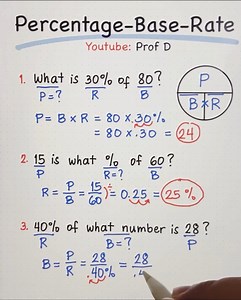 Percentage-Base-Rate
Youtube: Prof D
1. What is 30% of 80?
P=? R B
P
B × R
P = B x R = 80 x .30%
= 80 x .30 = 24
2. 15 is what % of 60?
P R=? B
R = P/B = 15/60 = 0.25 = 25%
3. 40% of what number is 28?
R B=? P
B = P/R = 28/.40% = 28/.4